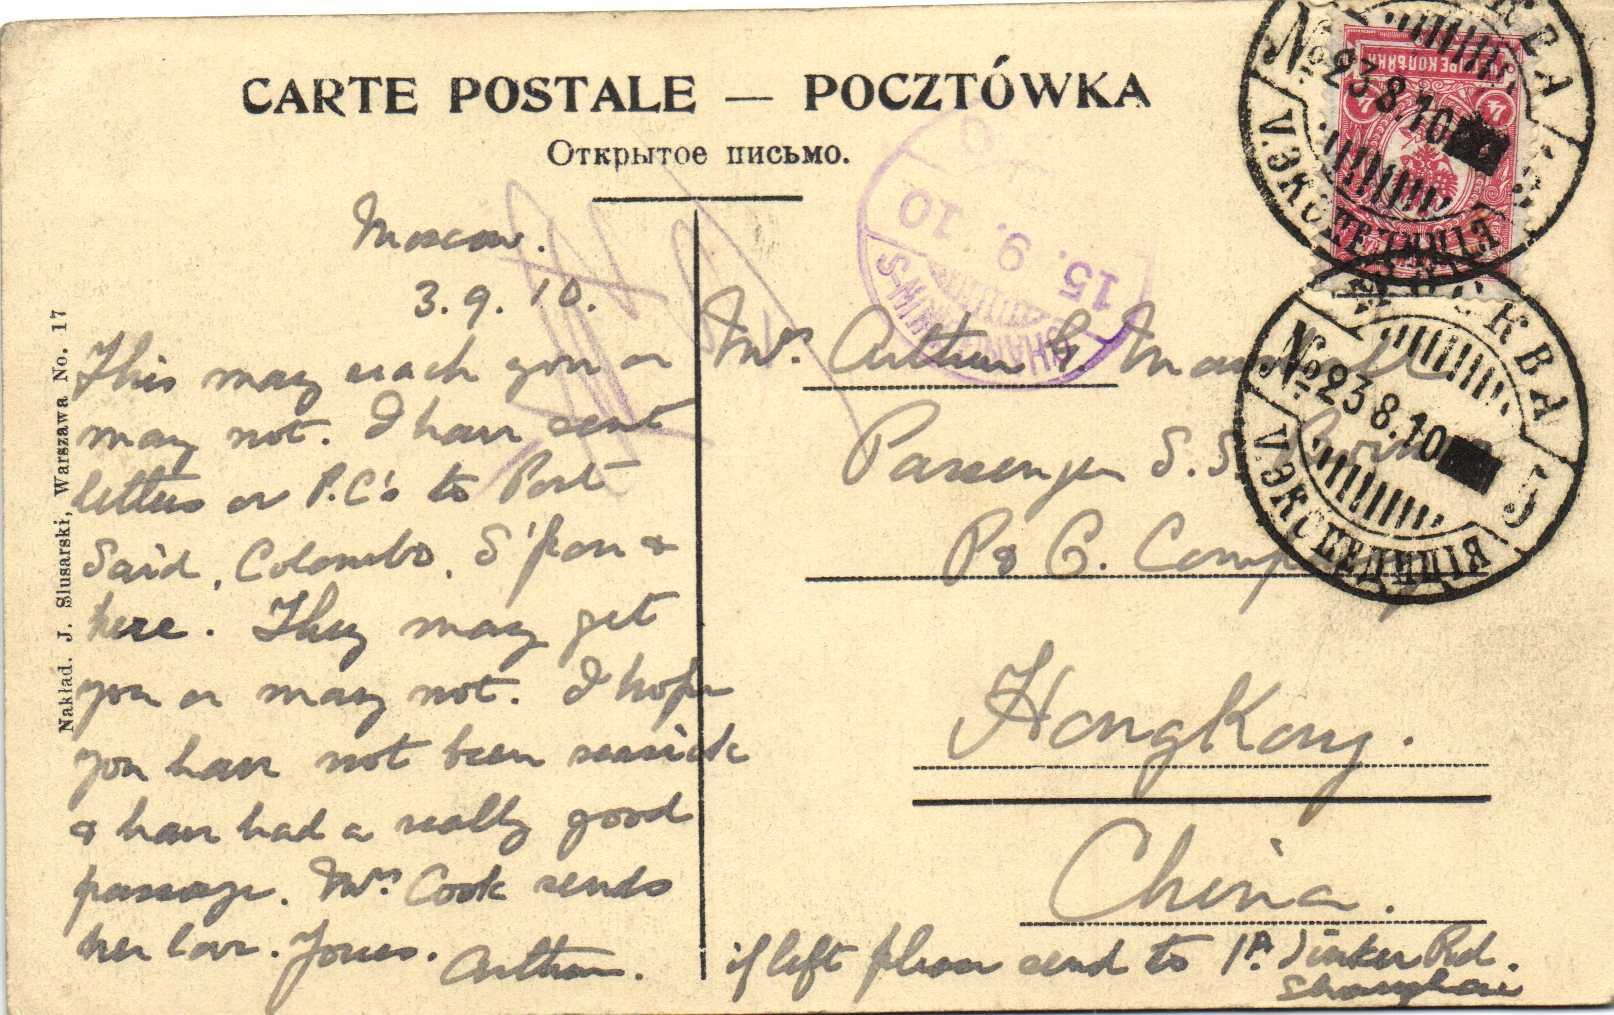 CARTE POSTALE — POCZTÓWKA
Открытое письмо.
Nakład. J. Slusarski, Warszawa No. 17
Moscow.
3.9.10.
This may reach you or
may not. I have sent
letters or P.C's to Port
Said, Colombo, S'pore &
here. They may get
you or may not. I hope
you have not been seasick
& have had a really good
passage. Mrs Cook sends
her love. Yours.
Arthur.
Mrs Arthur G
Passenger S.S.
P & O. Company
HongKong.
China.
if left please send to 1A. Sinker Rd.
Shanghai
15. 9. 10
МОСКВА
№ 23 8.10
V. ЭКСПЕДИЦІЯ
МОСКВА
№ 23 8.10
5
V. ЭКСПЕДИЦІЯ